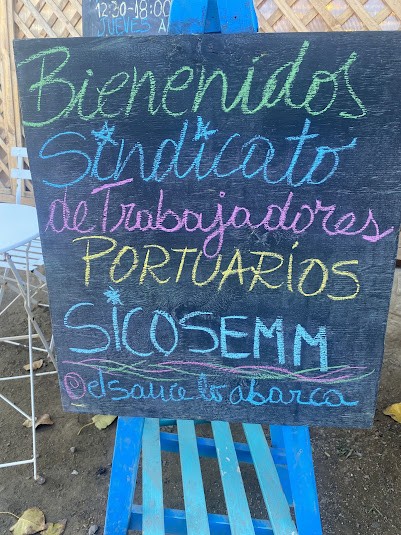 12:30-18:00
JUEVES A
Bienenidos
Sindicato
de Trabajadores
PORTUARIOS
SICOSEMM
@elsauce lo abarca